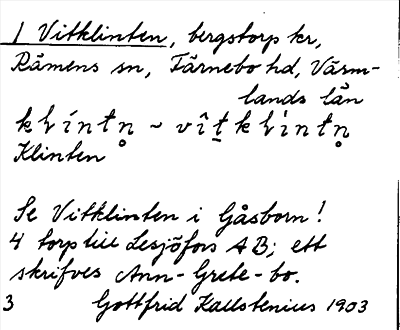 1 Vitklinten, bergstorp kr,
Rämens sn, Färnebo hd, Värm-
lands län
klíntn̥ ~ vîtklìntn̥
Klinten
Se Vitklinten i Gåsborn!
4 torp till Lesjöfors AB; ett
skrifves Ann-Grete-bo.
3 Gottfrid Kallstenius 1903